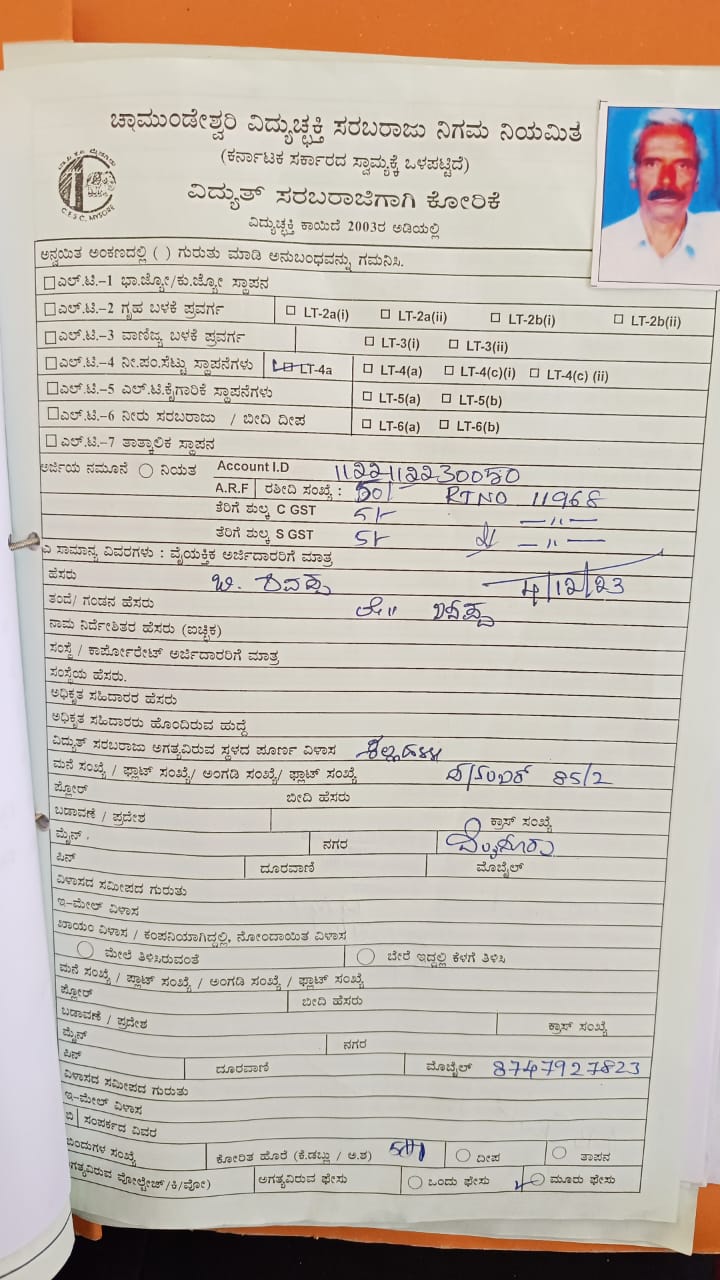 ಚಾಮುಂಡೇಶ್ವರಿ ವಿದ್ಯುಚ್ಛಕ್ತಿ ಸರಬರಾಜು ನಿಗಮ ನಿಯಮಿತ
(ಕರ್ನಾಟಕ ಸರ್ಕಾರದ ಸ್ವಾಮ್ಯಕ್ಕೆ ಒಳಪಟ್ಟಿದೆ)
C.E.S.C. MYSORE
ವಿದ್ಯುತ್ ಸರಬರಾಜಿಗಾಗಿ ಕೋರಿಕೆ
ವಿದ್ಯುಚ್ಛಕ್ತಿ ಕಾಯಿದೆ 2003ರ ಅಡಿಯಲ್ಲಿ
ಅನ್ವಯಿತ ಅಂಕಣದಲ್ಲಿ ( ) ಗುರುತು ಮಾಡಿ ಅನುಬಂಧವನ್ನು ಗಮನಿಸಿ.
ಎಲ್.ಟಿ.–1 ಭಾ.ಜ್ಯೋ/ಕು.ಜ್ಯೋ ಸ್ಥಾಪನ
ಎಲ್.ಟಿ.–2 ಗೃಹ ಬಳಕೆ ಪ್ರವರ್ಗ LT-2a(i) LT-2a(ii) LT-2b(i) LT-2b(ii)
ಎಲ್.ಟಿ.–3 ವಾಣಿಜ್ಯ ಬಳಕೆ ಪ್ರವರ್ಗ LT-3(i) LT-3(ii)
ಎಲ್.ಟಿ.–4 ನೀ.ಪಂ.ಸೆಟ್ಟು ಸ್ಥಾಪನೆಗಳು LT-4a LT-4(a) LT-4(c)(i) LT-4(c) (ii)
ಎಲ್.ಟಿ.–5 ಎಲ್.ಟಿ.ಕೈಗಾರಿಕೆ ಸ್ಥಾಪನೆಗಳು LT-5(a) LT-5(b)
ಎಲ್.ಟಿ.–6 ನೀರು ಸರಬರಾಜು / ಬೀದಿ ದೀಪ LT-6(a) LT-6(b)
ಎಲ್.ಟಿ.–7 ತಾತ್ಕಾಲಿಕ ಸ್ಥಾಪನ
ಅರ್ಜಿಯ ನಮೂನೆ ನಿಯತ Account I.D 1122112230050
A.R.F ರಶೀದಿ ಸಂಖ್ಯೆ : 50/- RTNO 11968
ತೆರಿಗೆ ಶುಲ್ಕ C GST 5/- — " —
ತೆರಿಗೆ ಶುಲ್ಕ S GST 5/- — " —
ಎ ಸಾಮಾನ್ಯ ವಿವರಗಳು : ವೈಯಕ್ತಿಕ ಅರ್ಜಿದಾರರಿಗೆ ಮಾತ್ರ
ಹೆಸರು 4/12/23
ತಂದೆ/ ಗಂಡನ ಹೆಸರು
ನಾಮ ನಿರ್ದೇಶಿತರ ಹೆಸರು (ಐಚ್ಛಿಕ)
ಸಂಸ್ಥೆ / ಕಾರ್ಪೋರೇಟ್ ಅರ್ಜಿದಾರರಿಗೆ ಮಾತ್ರ
ಸಂಸ್ಥೆಯ ಹೆಸರು.
ಅಧಿಕೃತ ಸಹಿದಾರರ ಹೆಸರು
ಅಧಿಕೃತ ಸಹಿದಾರರು ಹೊಂದಿರುವ ಹುದ್ದೆ
ವಿದ್ಯುತ್ ಸರಬರಾಜು ಅಗತ್ಯವಿರುವ ಸ್ಥಳದ ಪೂರ್ಣ ವಿಳಾಸ
ಮನೆ ಸಂಖ್ಯೆ/ ಫ್ಲಾಟ್ ಸಂಖ್ಯೆ/ ಅಂಗಡಿ ಸಂಖ್ಯೆ/ ಫ್ಲಾಟ್ ಸಂಖ್ಯೆ 85/2
ಫ್ಲೋರ್ ಬೀದಿ ಹೆಸರು
ಬಡಾವಣೆ / ಪ್ರದೇಶ ಕ್ರಾಸ್ ಸಂಖ್ಯೆ
ಮೈನ್ ನಗರ ಮೈಸೂರು
ಪಿನ್ ದೂರವಾಣಿ ಮೊಬೈಲ್
ವಿಳಾಸದ ಸಮೀಪದ ಗುರುತು
ಇ–ಮೇಲ್ ವಿಳಾಸ
ಖಾಯಂ ವಿಳಾಸ / ಕಂಪನಿಯಾಗಿದ್ದಲ್ಲಿ, ನೋಂದಾಯಿತ ವಿಳಾಸ
ಮೇಲೆ ತಿಳಿಸಿರುವಂತೆ ಬೇರೆ ಇದ್ದಲ್ಲಿ ಕೆಳಗೆ ತಿಳಿಸಿ
ಮನೆ ಸಂಖ್ಯೆ / ಫ್ಲಾಟ್ ಸಂಖ್ಯೆ / ಅಂಗಡಿ ಸಂಖ್ಯೆ / ಫ್ಲಾಟ್ ಸಂಖ್ಯೆ
ಫ್ಲೋರ್ ಬೀದಿ ಹೆಸರು
ಬಡಾವಣೆ / ಪ್ರದೇಶ ಕ್ರಾಸ್ ಸಂಖ್ಯೆ
ಮೈನ್ ನಗರ
ಪಿನ್ ದೂರವಾಣಿ ಮೊಬೈಲ್ 8747927823
ವಿಳಾಸದ ಸಮೀಪದ ಗುರುತು
ಇ–ಮೇಲ್ ವಿಳಾಸ
ಬಿ ಸಂಪರ್ಕದ ವಿವರ
ಬಿಂದುಗಳ ಸಂಖ್ಯೆ ಕೋರಿತ ಹೊರೆ (ಕೆ.ಡಬ್ಲು / ಅ.ಶ) ದೀಪ ತಾಪನ
ಅಗತ್ಯವಿರುವ ವೋಲ್ಟೇಜ್/ಕಿ/ವೋ) ಅಗತ್ಯವಿರುವ ಫೇಸು ಒಂದು ಫೇಸು ಮೂರು ಫೇಸು